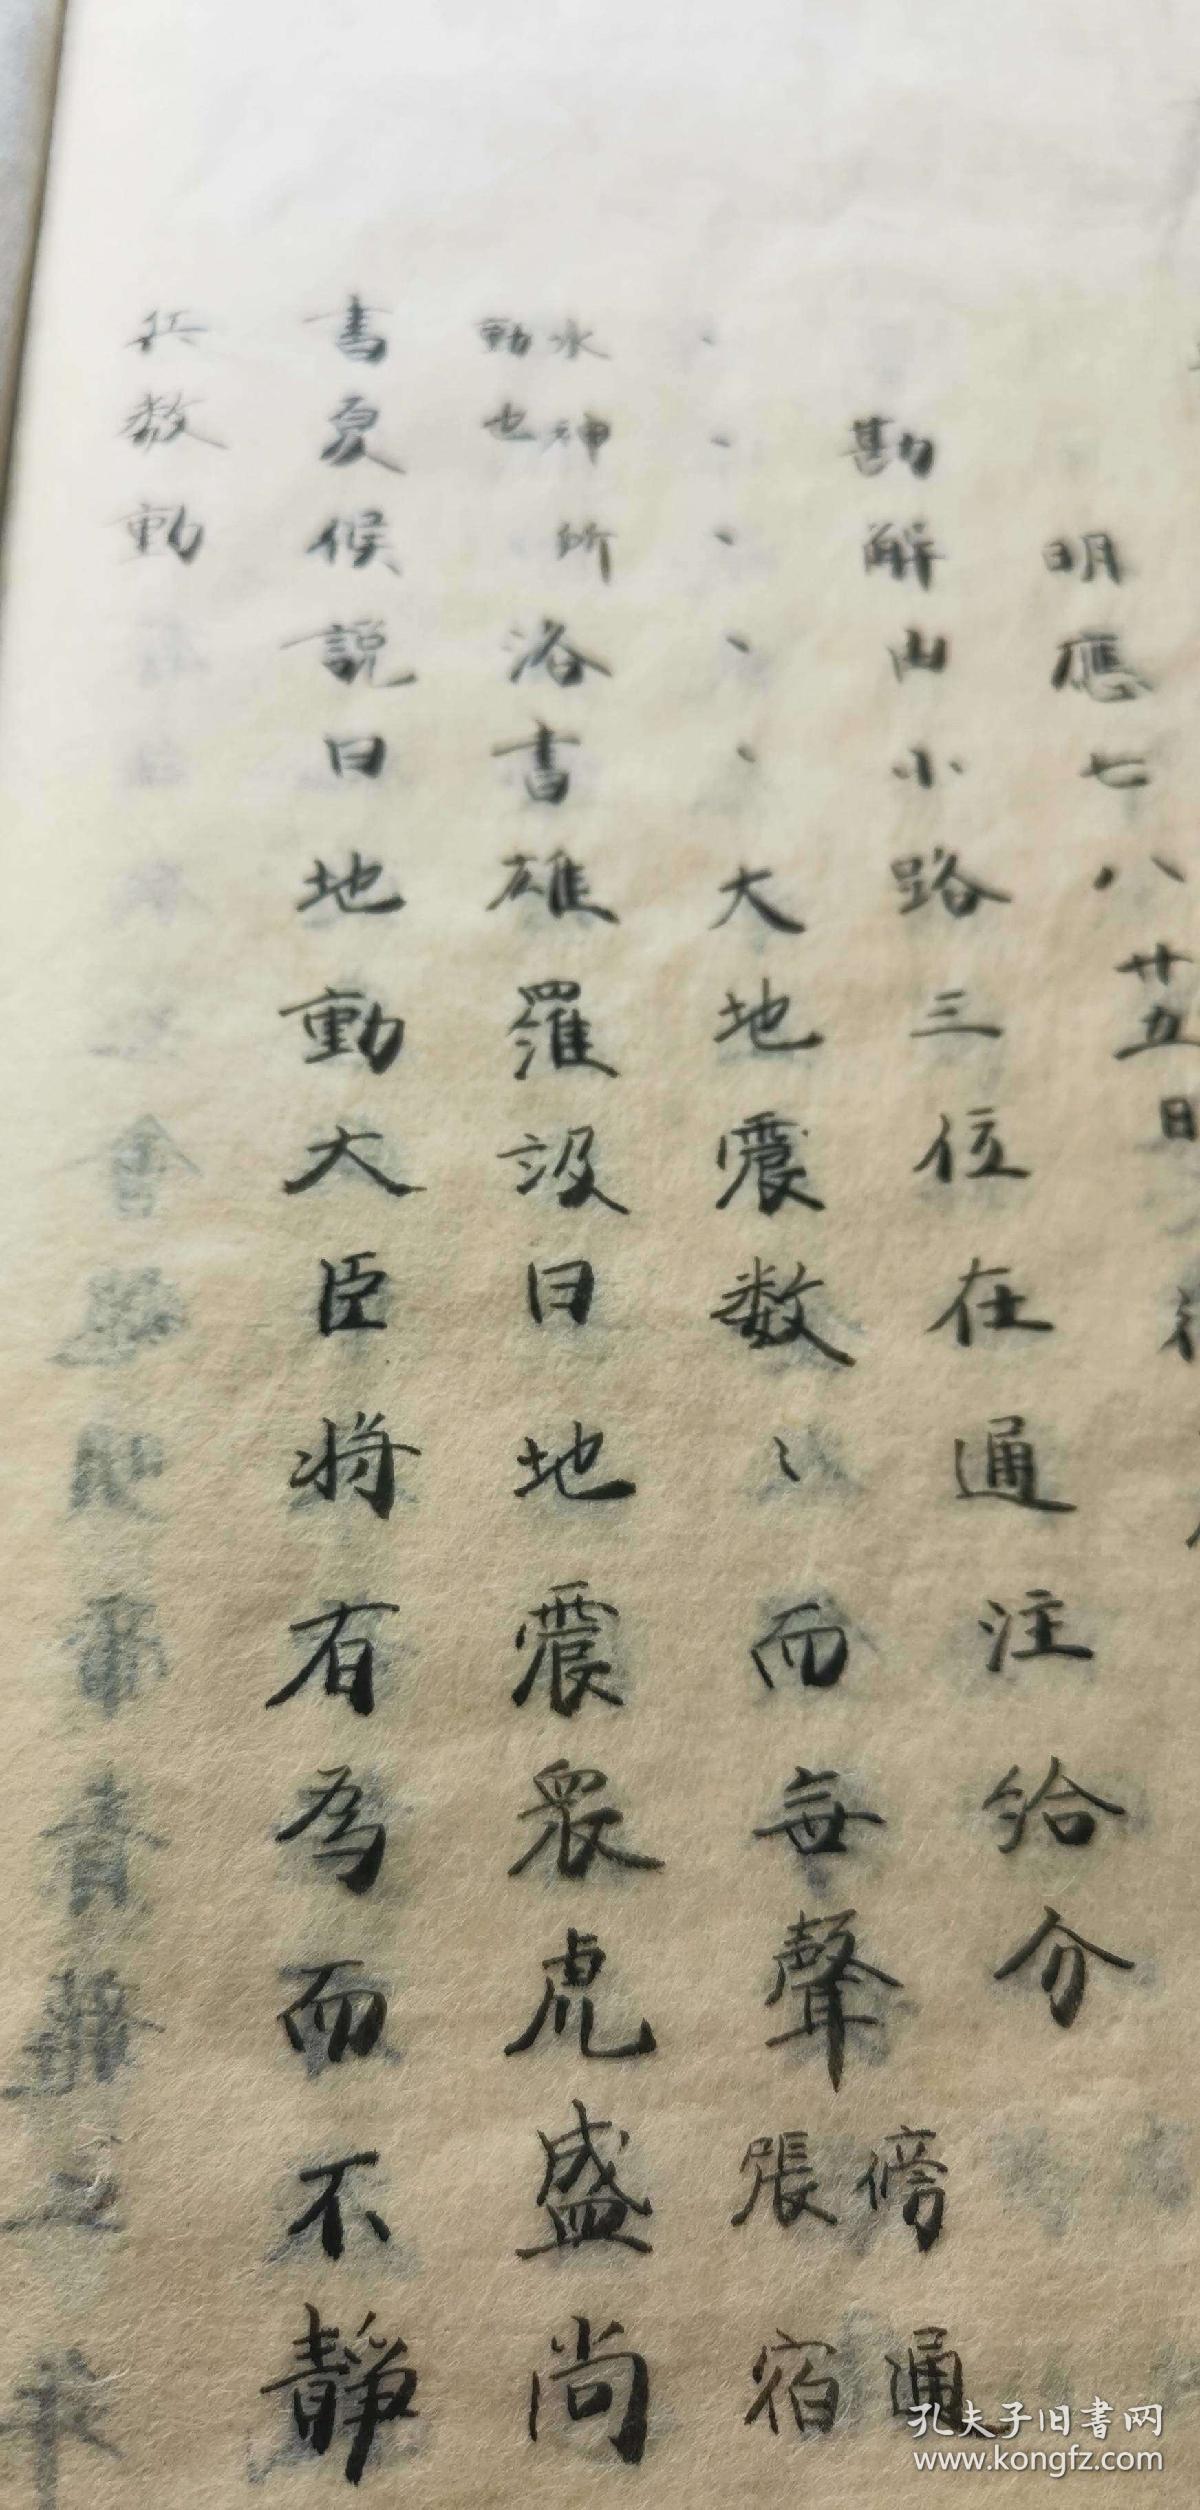 明應七八廿五日
勘解由小路三位在通注給分
、、、、、大地震数〻而無聲傍通張宿
水神所動也洛書雄羅設曰地震衆虎盛尚
書夏候説曰地動大臣将有為而不靜
兵数動
孔夫子旧書网
www.kongfz.com